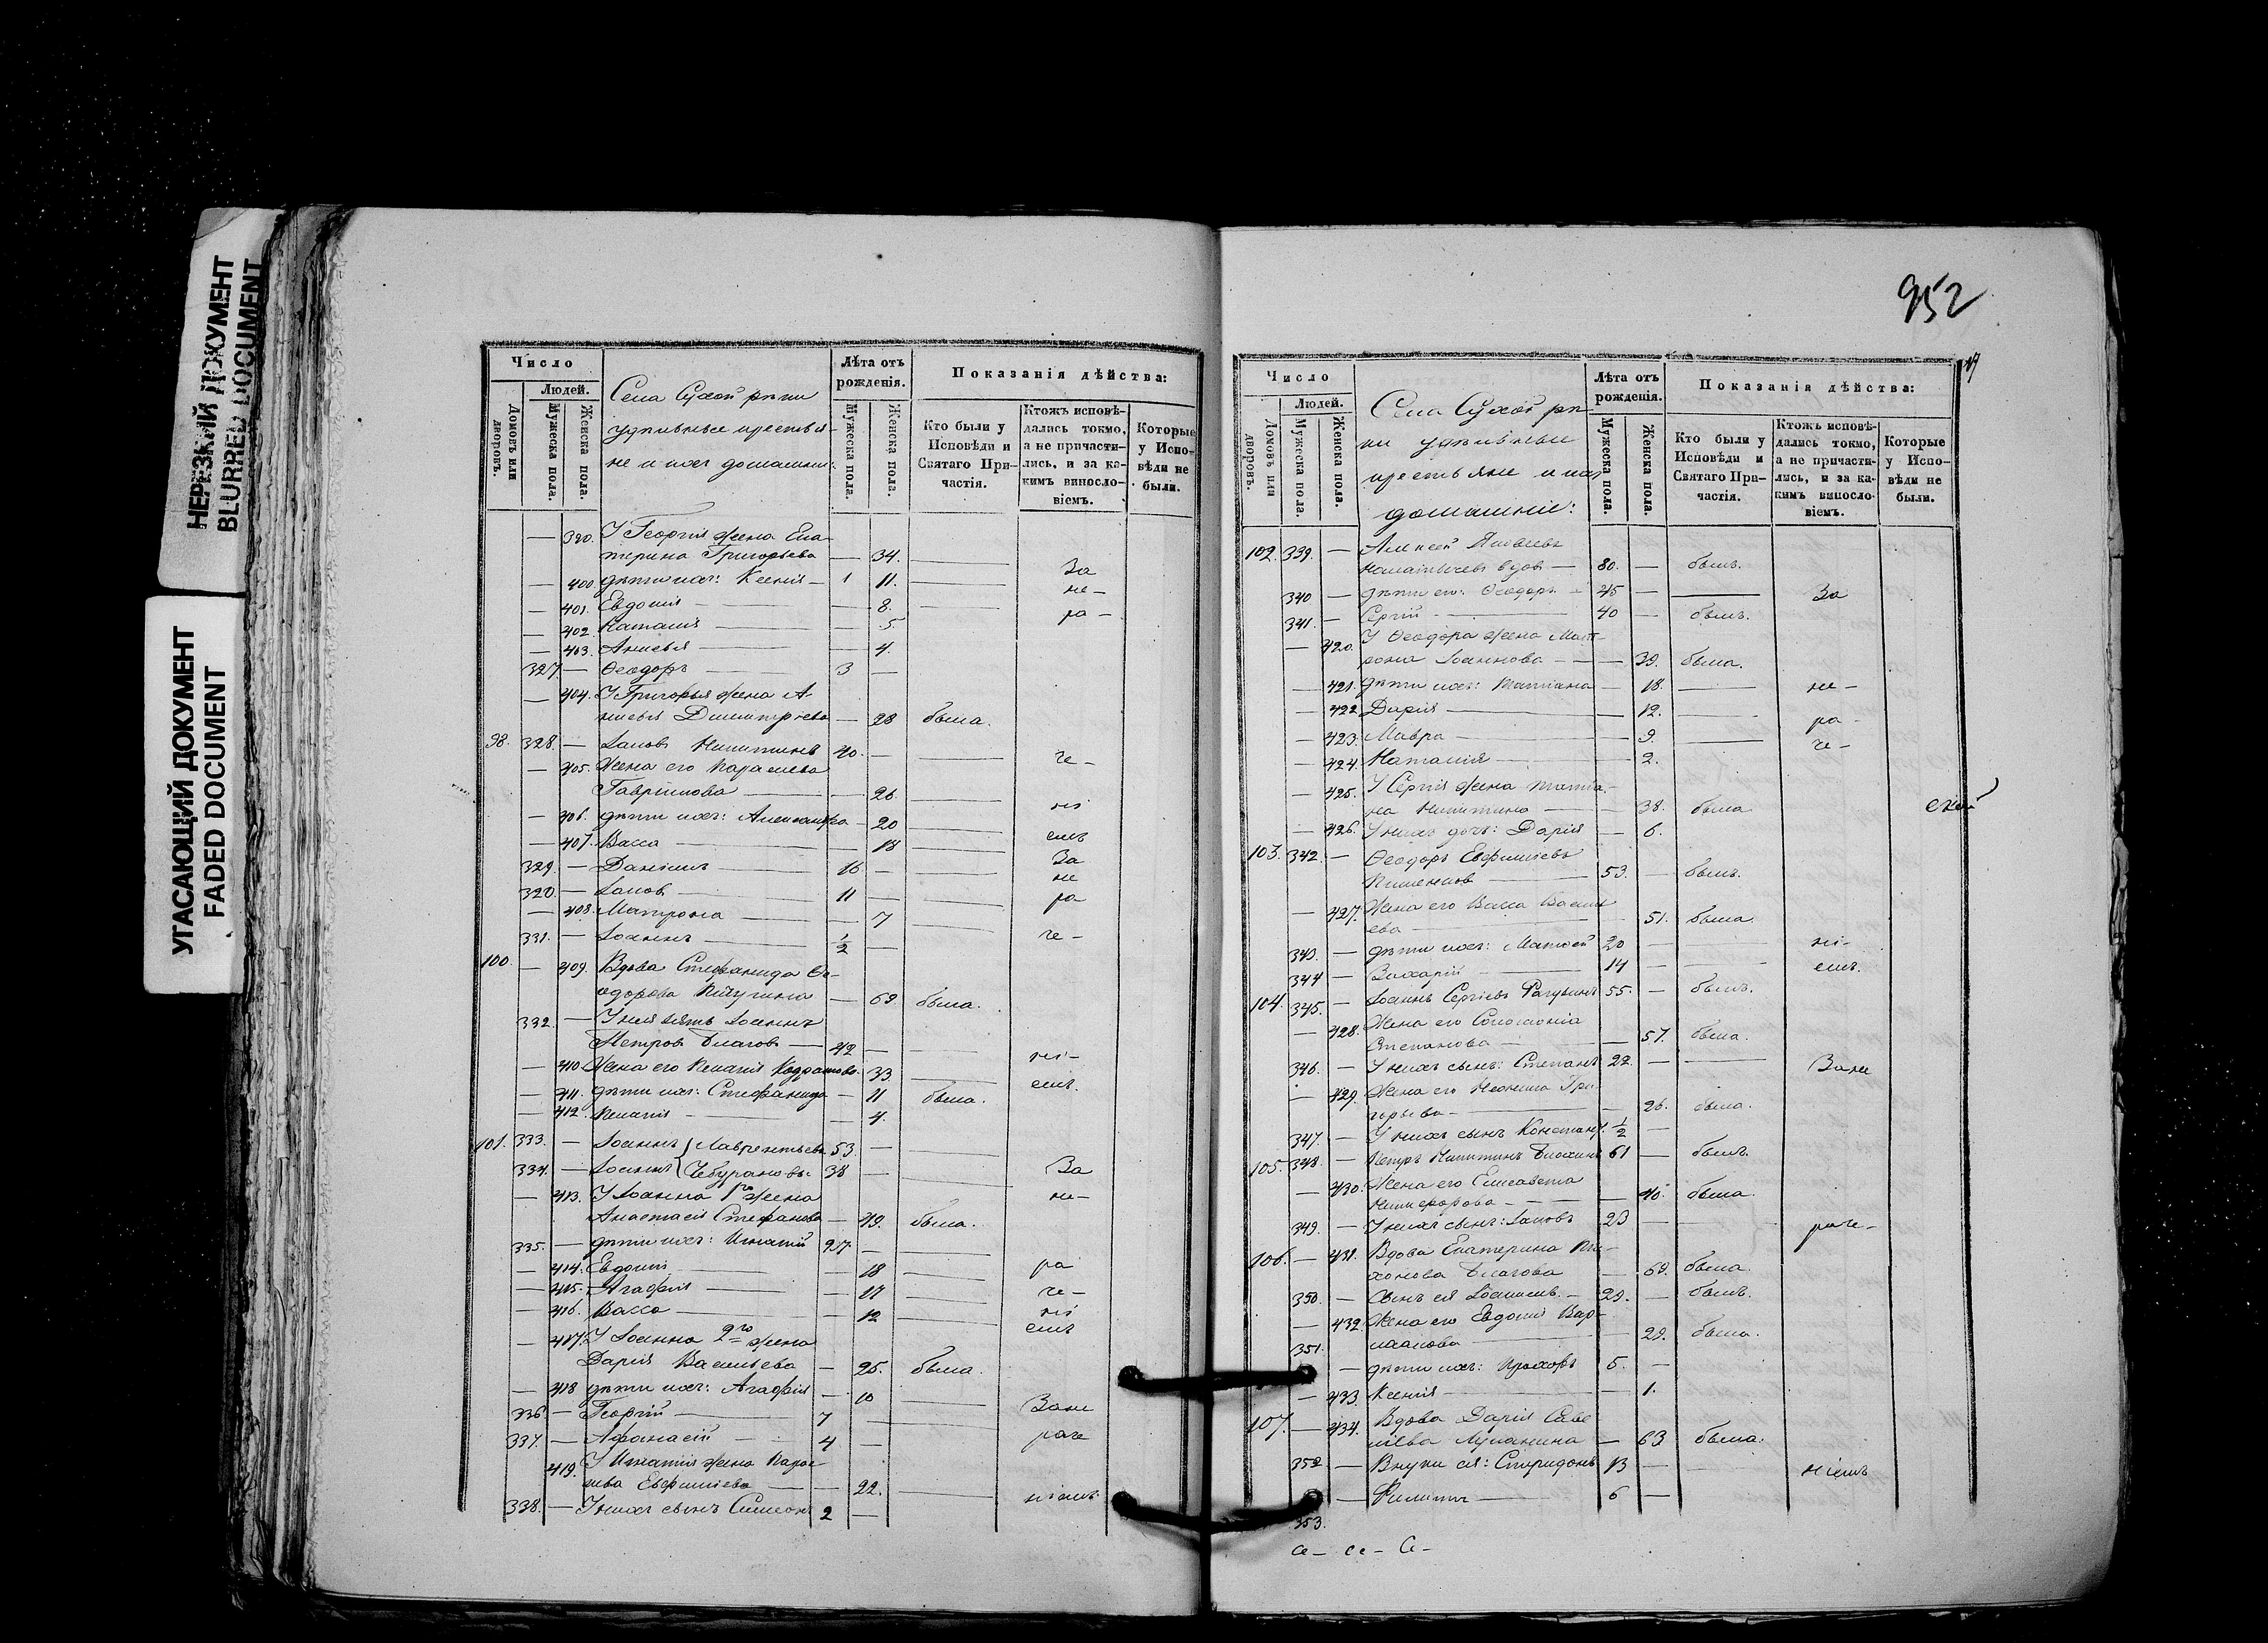 НЕРЕЗКИЙ ДОКУМЕНТ
BLURRED DOCUMENT
УГАСАЮЩИЙ ДОКУМЕНТ
FADED DOCUMENT
Число
Людей.
Домовъ или дворовъ.
Мужеска пола.
Женска пола.
Села Сухой рѣки
удѣльные крестья-
не и ихъ домашніе:
Лѣта отъ рожденія.
Мужеска пола.
Женска пола.
Показанія дѣйства:
Кто были у Исповѣди и Святаго Причастія.
Ктожъ исповѣдались токмо, а не причастились, и за какимъ винословіемъ.
Которые у Исповѣди не были.
У Георгія жена Ека-
терина Григорьева — 34.
За
— 400 дѣти ихъ: Ксенія — 11.
не-
— 401. Евдокія — 8.
ра-
— 402. Наталія — 5
— 403. Анисья — 4.
327 — Ѳеодоръ 3 —
— 404. У Григорья жена А-
нисья Димитріева — 28 была.
98. 328. — Іаковъ Никитинъ 40. —
че-
— 405. Жена его Параскева
Гавриилова — 26
ні
— 406. дѣти ихъ: Александра — 20
емъ
— 407. Васса — 18
За
329. — Даніилъ 16 —
не
320. — Іаковъ 11 —
ра
— 408. Матрона — 7
331. — Іоаннъ ½ —
че-
100. — 409. Вдова Стефанида Ѳе-
одорова — 69 была.
332. — У нея зять Іоаннъ
Петровъ Благовъ — 42 —
ні-
— 410. Жена его Пелагія — 33
емъ.
— 411. дѣти ихъ: Стефанида — 11 была.
— 412. Пелагія — 4.
101. 333. — Іоаннъ } Лаврентьевы 53. —
334. — Іоаннъ } Чебурановы 38 —
За
— 413. У Іоанна 1го жена
не-
Анастасія Стефанова — 49. была.
335. — дѣти ихъ: Игнатій —
— 414. Евдокія — 18
ра
— 415. Агафія — 17
че-
— 416. Васса — 12
ні
емъ
— 417. У Іоанна 2го жена
Дарія Васильева — 25. была.
— 418 дѣти ихъ: Агафія — 10
Зане
336. — Георгій 7
раче
337. — Афанасій 4 —
419. У Игнатія жена Парас-
кева Евфиміева — 22.
ніемъ
338. — У нихъ сынъ Симеонъ 2 —
952
Число
Людей.
Домовъ или дворовъ.
Мужеска пола.
Женска пола.
Села Сухой рѣ-
ки удѣльные
крестьяне и ихъ
домашніе:
Лѣта отъ рожденія.
Мужеска пола.
Женска пола.
Показанія дѣйства:
Кто были у Исповѣди и Святаго Причастія.
Ктожъ исповѣдались токмо, а не причастились, и за какимъ винословіемъ.
Которые у Исповѣди не были.
102. 339. — Алексей Яковлевъ
вдовъ — 80. — былъ.
340 — дѣти его: Ѳеодоръ 45 —
За
341. — Сергій 40 — былъ.
— 420. У Ѳеодора жена Мат-
рона Іоаннова — 39. была.
— 421. дѣти ихъ: Татіана — 18.
не-
— 422 Дарія — 12.
ра-
— 423. Мавра — 9.
че-
— 424. Наталія — 2.
— 425. У Сергія жена Татіа-
на Никитина — 38. была
— 426. У нихъ дочь: Дарія — 6.
103. 342 — Ѳеодоръ Евфиміевъ
53. — былъ.
— 427. Жена его Васса Василь
ева — 51. была.
343. — дѣти ихъ: Матвей 20 —
ні-
344 — Захарій 14 —
емъ.
104. 345. — Іоаннъ Сергіевъ 55. — былъ.
— 428. Жена его Соломонія
Степанова — 57. была.
346. — У нихъ сынъ: Степанъ 22. —
Зане
— 429. Жена его Неонила Гри-
горьева — 26. была.
347. — У нихъ сынъ Констант. ½ —
105. 348. — Петръ Никитинъ 61 — былъ.
— 430. Жена его Елисавета
Никифорова — 40. была.
349. — У нихъ сынъ: Іаковъ 23 —
раче-
106. — 431. Вдова Екатерина Ти-
хонова Благова — 69. была.
350. — Сынъ ея 29. — былъ.
— 432. Жена его Евдокія Вар-
лаамова — 29. была.
351. — дѣти ихъ: Прохоръ 5. —
— 433. Ксенія — 1.
107. — 434. Вдова Дарія Саве
ліева Лукашина — 63 была.
352 — Внуки ея: Спиридонъ 13 —
ніемъ
— Филиппъ 6 —
353.